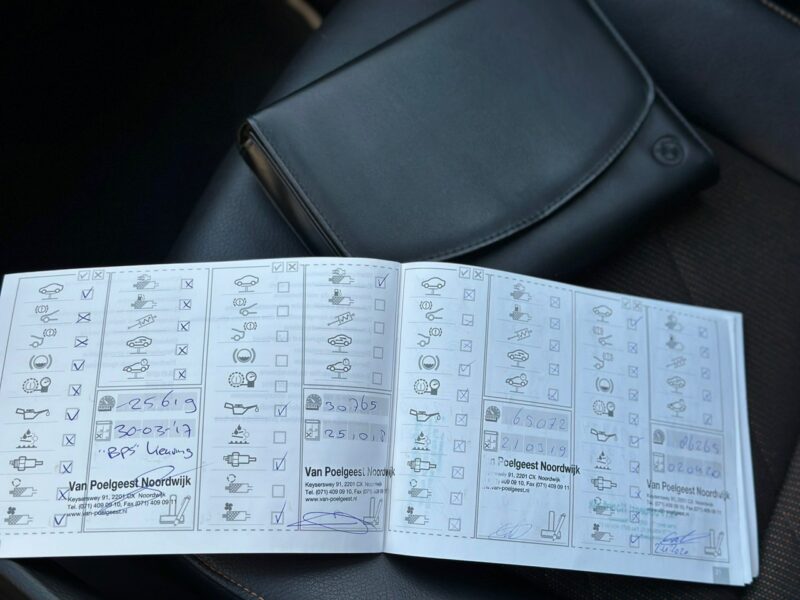 25619
30-03-'17
"BPS" Keuring
Van Poelgeest Noordwijk
Keyserswey 91, 2201 CX Noordwijk
Tel. (071) 409 09 10, Fax (071) 409 09 11
www.van-poelgeest.nl
30765
Van Poelgeest Noordwijk
Keyserswey 91, 2201 CX Noordwijk
Tel. (071) 409 09 10, Fax (071) 409 09 11
www.van-poelgeest.nl
65072
210319
Van Poelgeest Noordwijk
Keyserswey 91, 2201 CX Noordwijk
Tel. (071) 409 09 10, Fax (071) 409 09 11
www.van-poelgeest.nl
86265
Van Poelgeest Noordwijk
Keyserswey 91, 2201 CX Noordwijk
Tel. (071) 409 09 10, Fax (071) 409 09 11
www.van-poelgeest.nl